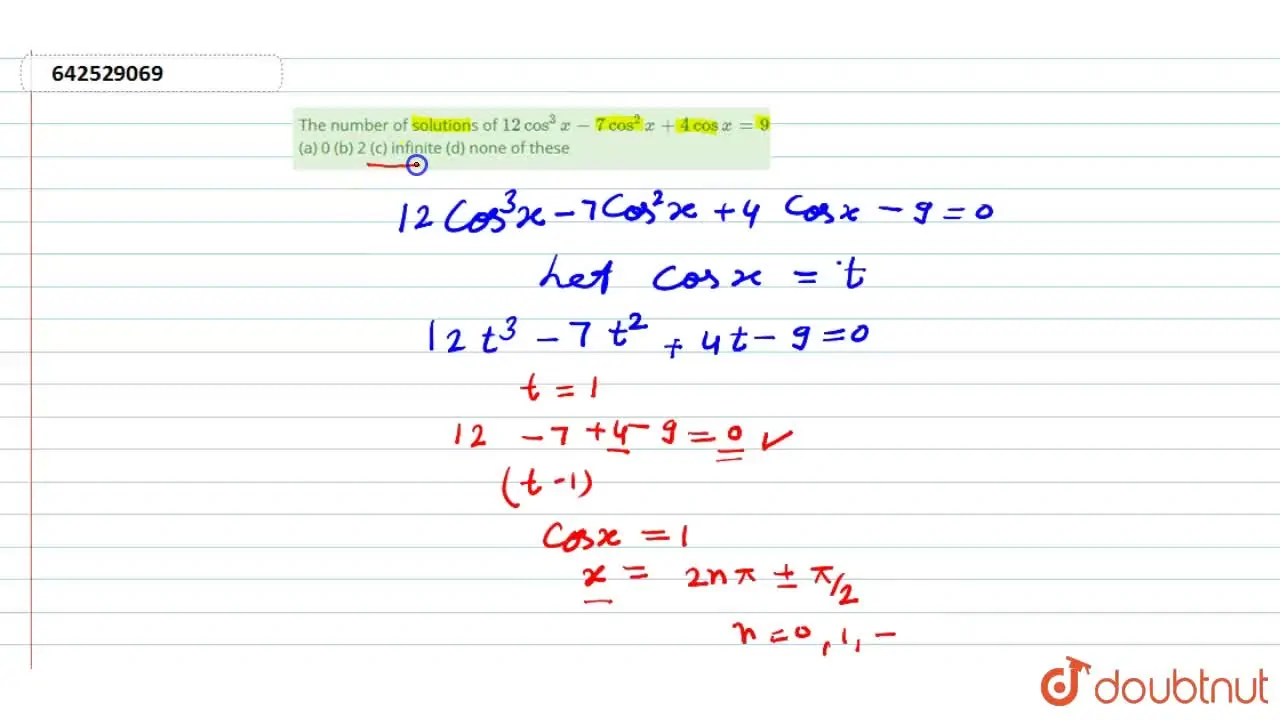 642529069
The number of solutions of 12 cos³ x − 7 cos² x + 4 cos x = 9
(a) 0 (b) 2 (c) infinite (d) none of these
12 Cos³x − 7 Cos²x + 4 Cosx − 9 = 0
Let Cosx = t
12 t³ − 7 t² + 4t − 9 = 0
t = 1
12 − 7 + 4 − 9 = 0 ✓
(t − 1)
Cosx = 1
x = 2nπ ± π/2
n = 0, 1, −
doubtnut